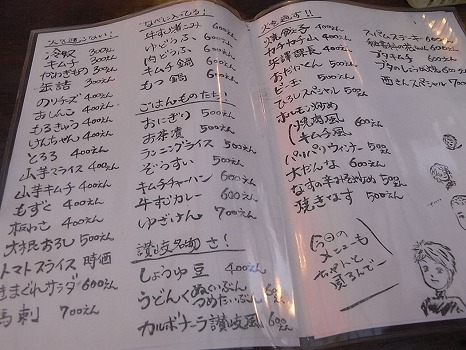 火を通さない!
冷奴 300えん
キムチ 300えん
やわぎもの 300えん
缶詰 300えん
のりチーズ 400えん
おしんこ 400えん
もろきゅう 400えん
けんちゃん 400えん
とろろ 400えん
山芋スライス 400えん
山芋キムチ 400えん
もずく 400えん
板わさ 400えん
大根おろし 500えん
トマトスライス 時価
きまぐれサラダ 600えん
馬刺 700えん
なべに入ってる!
牛すじ煮こみ 600えん
ゆどうふ 600えん
肉どうふ 600えん
キムチ鍋 600えん
もつ鍋 600えん
ごはんものたち!
おにぎり 500えん
お茶漬 500えん
ランニングライス 500えん
ぞうすい 500えん
キムチチャーハン 600えん
牛すじカレー 600えん
ゆざけん 700えん
讃岐名物さ!
しょうゆ豆 400えん
うどん
ぬくいぶん 500えん
つめたいぶん 500えん
カルボナーラ讃岐風 600えん
火を通す!!
焼餃子 400えん
カチャカチャ山 400えん
兵津課長 400えん
おだくん 500えん
ピー玉 500えん
ひろしスペシャル 500えん
ホルモン炒め
焼肉風 600えん
キムチ風
パリパリウィンナー 500えん
大だんな 600えん
なすの辛みそ炒め 500えん
焼きなす 500えん
スパムステーキ 600えん
600えん
ブタキムチ 600えん
ブタのしょうが焼 600えん
西さんスペシャル 700えん
今日の
メニューも
ちゃんと
見るんでー